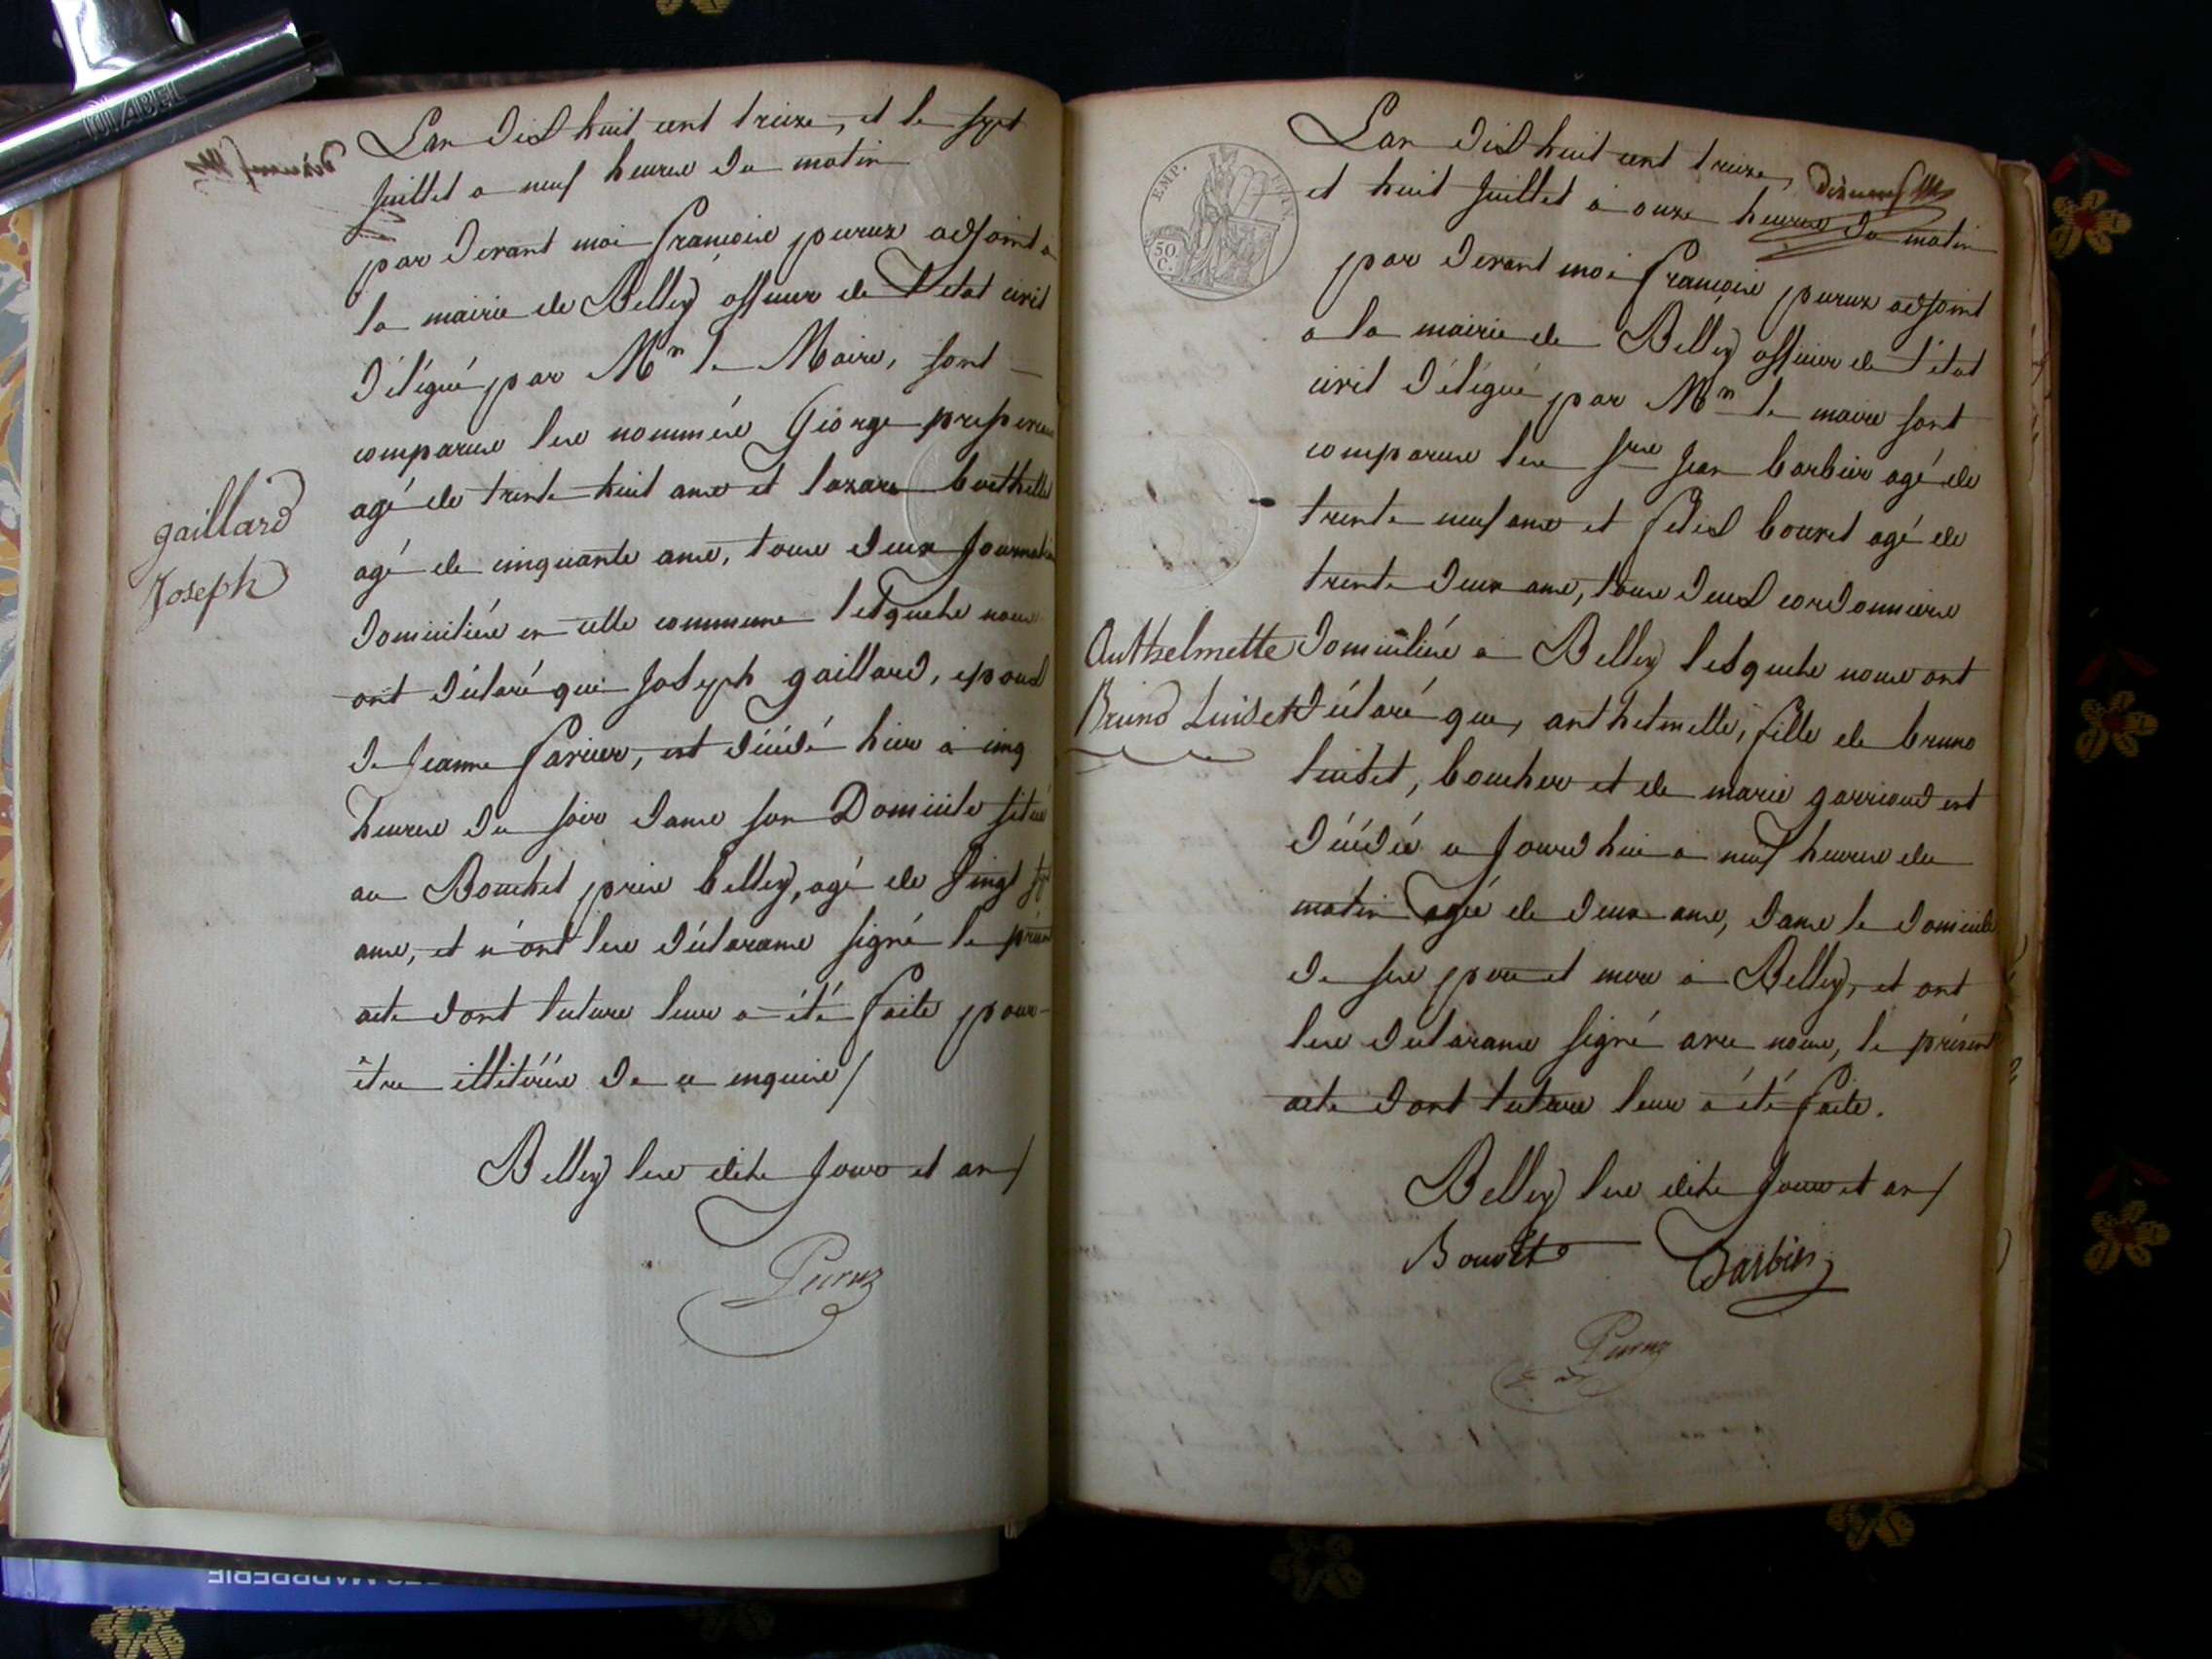 DIABEL
Lan dix huit cent treize, et le sept
Juillet a neuf heures du matin
par devant moi françois peruz adjoint a
la mairie de Belley officier de l'etat civil
délégué par Mr le Maire, sont
comparus les nommés George
agé de trente huit ans et lazare
agé de cinquante ans, tous deux
domiciliés en cette commune lesquels nous
ont déclaré que Joseph gaillard, epoux
de Jeanne, est décédé hier à cinq
heures du soir dans son Domicile situé
au Bouchet près belley, agé de vingt sept
ans, et n'ont les déclarans signé le présent
acte dont lecture leur a été faite pour
être illitérés de ce enquis/
Belley les dits Jour et an/
Peruz
gaillard
Joseph
EMP.
50
C.
Lan dix huit cent treize, dixneuf
et huit Juillet à onze heures du matin
par devant moi françois peruz adjoint
a la mairie de Belley officier de l'état
civil délégué par Mr le maire sont
comparus les srs Jean barbier agé de
trente neuf ans et felix bouvet agé de
trente deux ans, tous deux cordonniers
domiciliés à Belley lesquels nous ont
déclaré que, anthelmette, fille de bruno
luiset, boucher et de marie garrioud est
décédée aujourdhui a neuf heures du
matin agée de deux ans, dans le domicile
de ses pere et mere à Belley, et ont
les declarans signé avec nous, le présent
acte dont lecture leur a été faite.
Belley les dits Jour et an/
Bouvet Barbier
Peruz
Anthelmette
Bruno Luiset